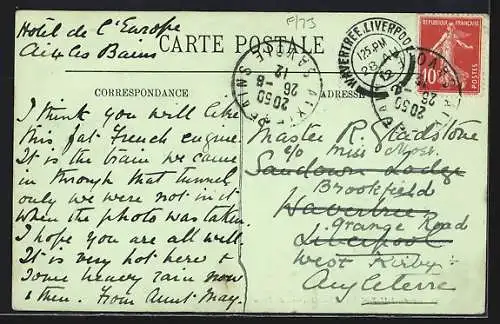 Hotel de l'Europe
Aix les Bains
F/73
CARTE POSTALE
CORRESPONDANCE
ADRESSE
I think you will like
this fat French engine.
It is the train we came
in through that tunnel
only we were not in it
when the photo was taken.
I hope you are all well.
It is very hot here &
some heavy rain now
& then. From Aunt May.
Master R. Gladstone
c/o Miss
Sandown Lodge
Brookfield
Wavertree
Grange Road
Liverpool
West Kirby
Angleterre
WAVERTREE.LIVERPOOL
REPUBLIQUE FRANÇAISE
10
POSTES
20 50
26 -8
12
20 50
26 -8